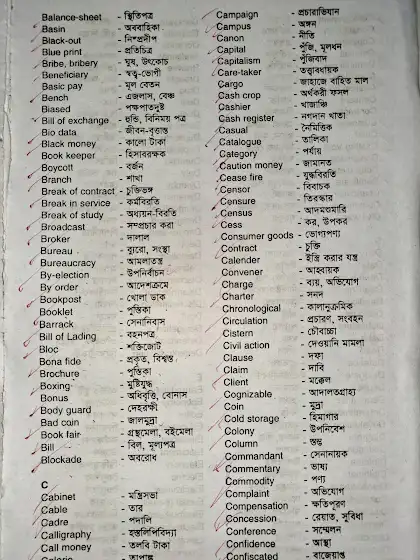 Balance-sheet - স্থিতিপত্র
Basin - অববাহিকা
Black-out - নিষ্প্রদীপ
Blue print - প্রতিচিত্র
Bribe, bribery - ঘুষ, উৎকোচ
Beneficiary - স্বত্ব-ভোগী
Basic pay - মূল বেতন
Bench - এজলাস, বেঞ্চ
Biased - পক্ষপাতদুষ্ট
Bill of exchange - হুন্ডি, বিনিময় পত্র
Bio data - জীবন-বৃত্তান্ত
Black money - কালো টাকা
Book keeper - হিসাবরক্ষক
Boycott - বর্জন
Branch - শাখা
Break of contract - চুক্তিভঙ্গ
Break in service - কর্মবিরতি
Break of study - অধ্যয়ন-বিরতি
Broadcast - সম্প্রচার করা
Broker - দালাল
Bureau - ব্যুরো, সংস্থা
Bureaucracy - আমলাতন্ত্র
By-election - উপনির্বাচন
By order - আদেশক্রমে
Bookpost - খোলা ডাক
Booklet - পুস্তিকা
Barrack - সেনানিবাস
Bill of Lading - বহনপত্র
Bloc - শক্তিজোট
Bona fide - প্রকৃত, বিশ্বস্ত
Brochure - পুস্তিকা
Boxing - মুষ্টিযুদ্ধ
Bonus - অধিবৃত্তি, বোনাস
Body guard - দেহরক্ষী
Bad coin - জালমুদ্রা
Book fair - গ্রন্থমেলা, বইমেলা
Bill - বিল, মূল্যপত্র
Blockade - অবরোধ
C
Cabinet - মন্ত্রিসভা
Cable - তার
Cadre - পদালি
Calligraphy - হস্তলিপিবিদ্যা
Call money - তলবি টাকা
Calorie - তাপাঙ্ক
Campaign - প্রচারাভিযান
Campus - অঙ্গন
Canon - নীতি
Capital - পুঁজি, মূলধন
Capitalism - পুঁজিবাদ
Care-taker - তত্ত্বাবধায়ক
Cargo - জাহাজে বাহিত মাল
Cash crop - অর্থকরী ফসল
Cashier - খাজাঞ্চি
Cash register - নগদান খাতা
Casual - নৈমিত্তিক
Catalogue - তালিকা
Category - পর্যায়
Caution money - জামানত
Cease fire - যুদ্ধবিরতি
Censor - বিবাচক
Censure - তিরস্কার
Census - আদমশুমারি
Cess - কর, উপকর
Consumer goods - ভোগ্যপণ্য
Contract - চুক্তি
Calender - ইস্ত্রি করার যন্ত্র
Convener - আহ্বায়ক
Charge - ব্যয়, অভিযোগ
Charter - সনদ
Chronological - কালানুক্রমিক
Circulation - প্রচারণ, সংবহন
Cistern - চৌবাচ্চা
Civil action - দেওয়ানি মামলা
Clause - দফা
Claim - দাবি
Client - মক্কেল
Cognizable - আদালতগ্রাহ্য
Coin - মুদ্রা
Cold storage - হিমাগার
Colony - উপনিবেশ
Column - স্তম্ভ
Commandant - সেনানায়ক
Commentary - ভাষ্য
Commodity - পণ্য
Complaint - অভিযোগ
Compensation - ক্ষতিপূরণ
Concession - রেয়াত, সুবিধা
Conference - সম্মেলন
Confidence - আস্থা
Confiscated - বাজেয়াপ্ত